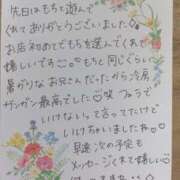 先日はももと遊んで
くれてありがとうございました♡
お店初めてでももを選んでくれて
嬉しいです♡ももと同じくらい
暑がりなお兄さんだったから冷房
ガンガン最高でした♡笑
いけないって言ってたけど
いけちゃいましたね
早速次の予定も
メッセージくれて嬉しい♡